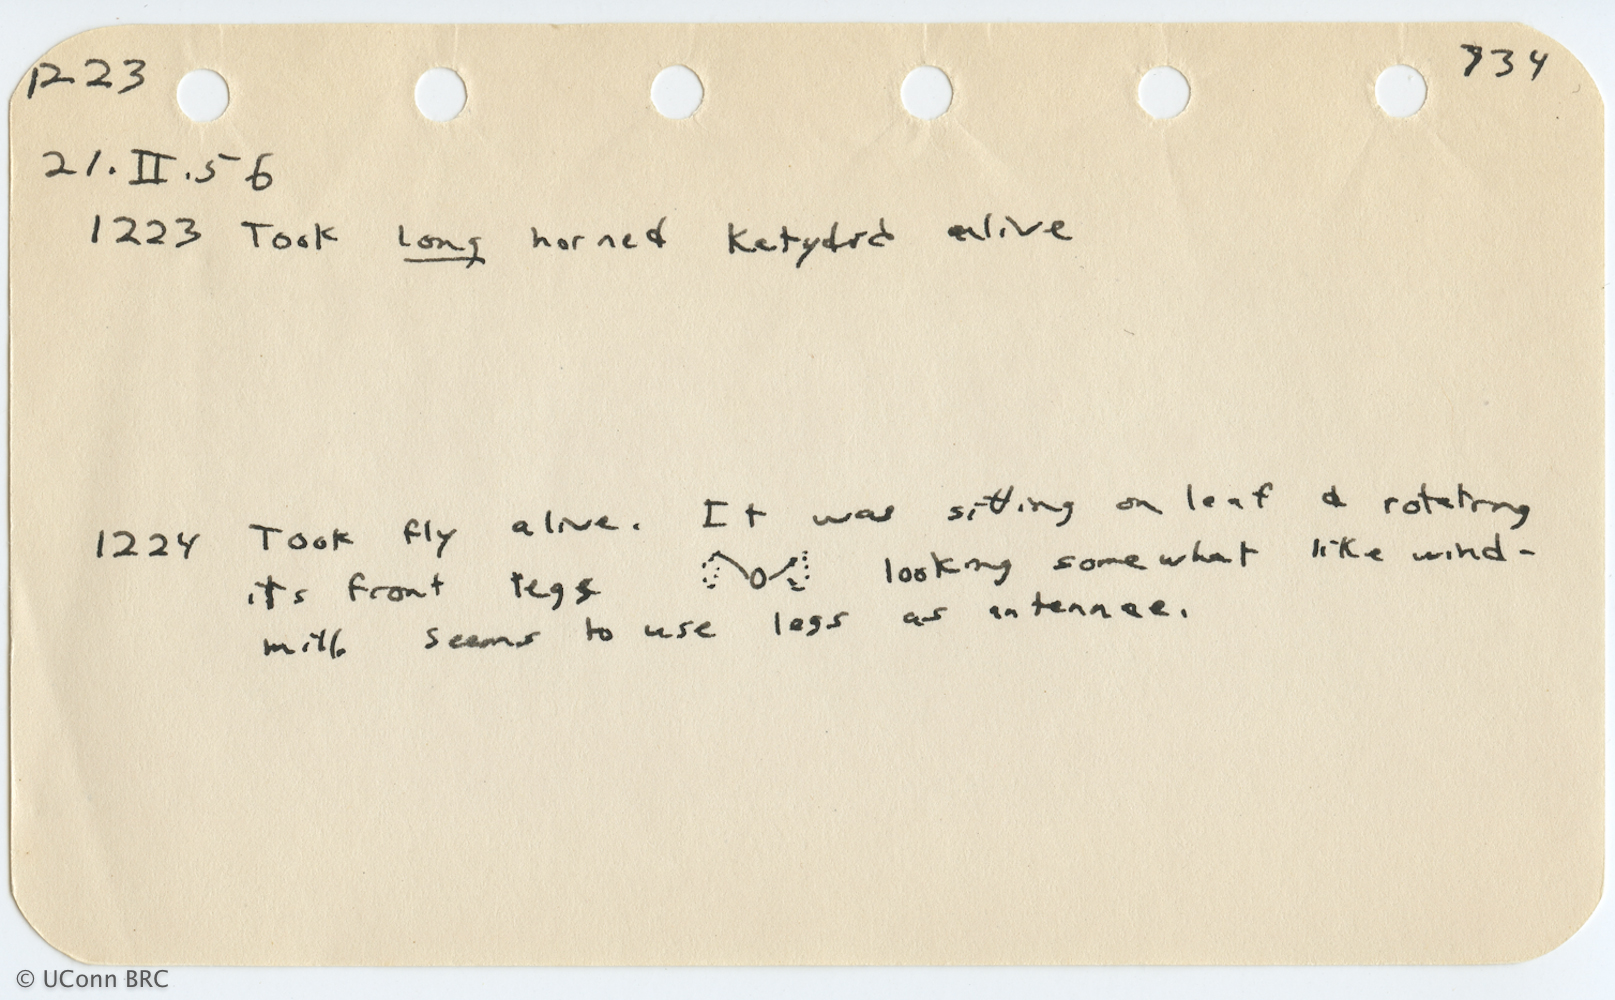 1223 734
21.II.56
1223 Took long horned Katydid alive
1224 Took fly alive. It was sitting on leaf & rotating
its front legs looking somewhat like wind-
mill seems to use legs as antennae.
© UConn BRC